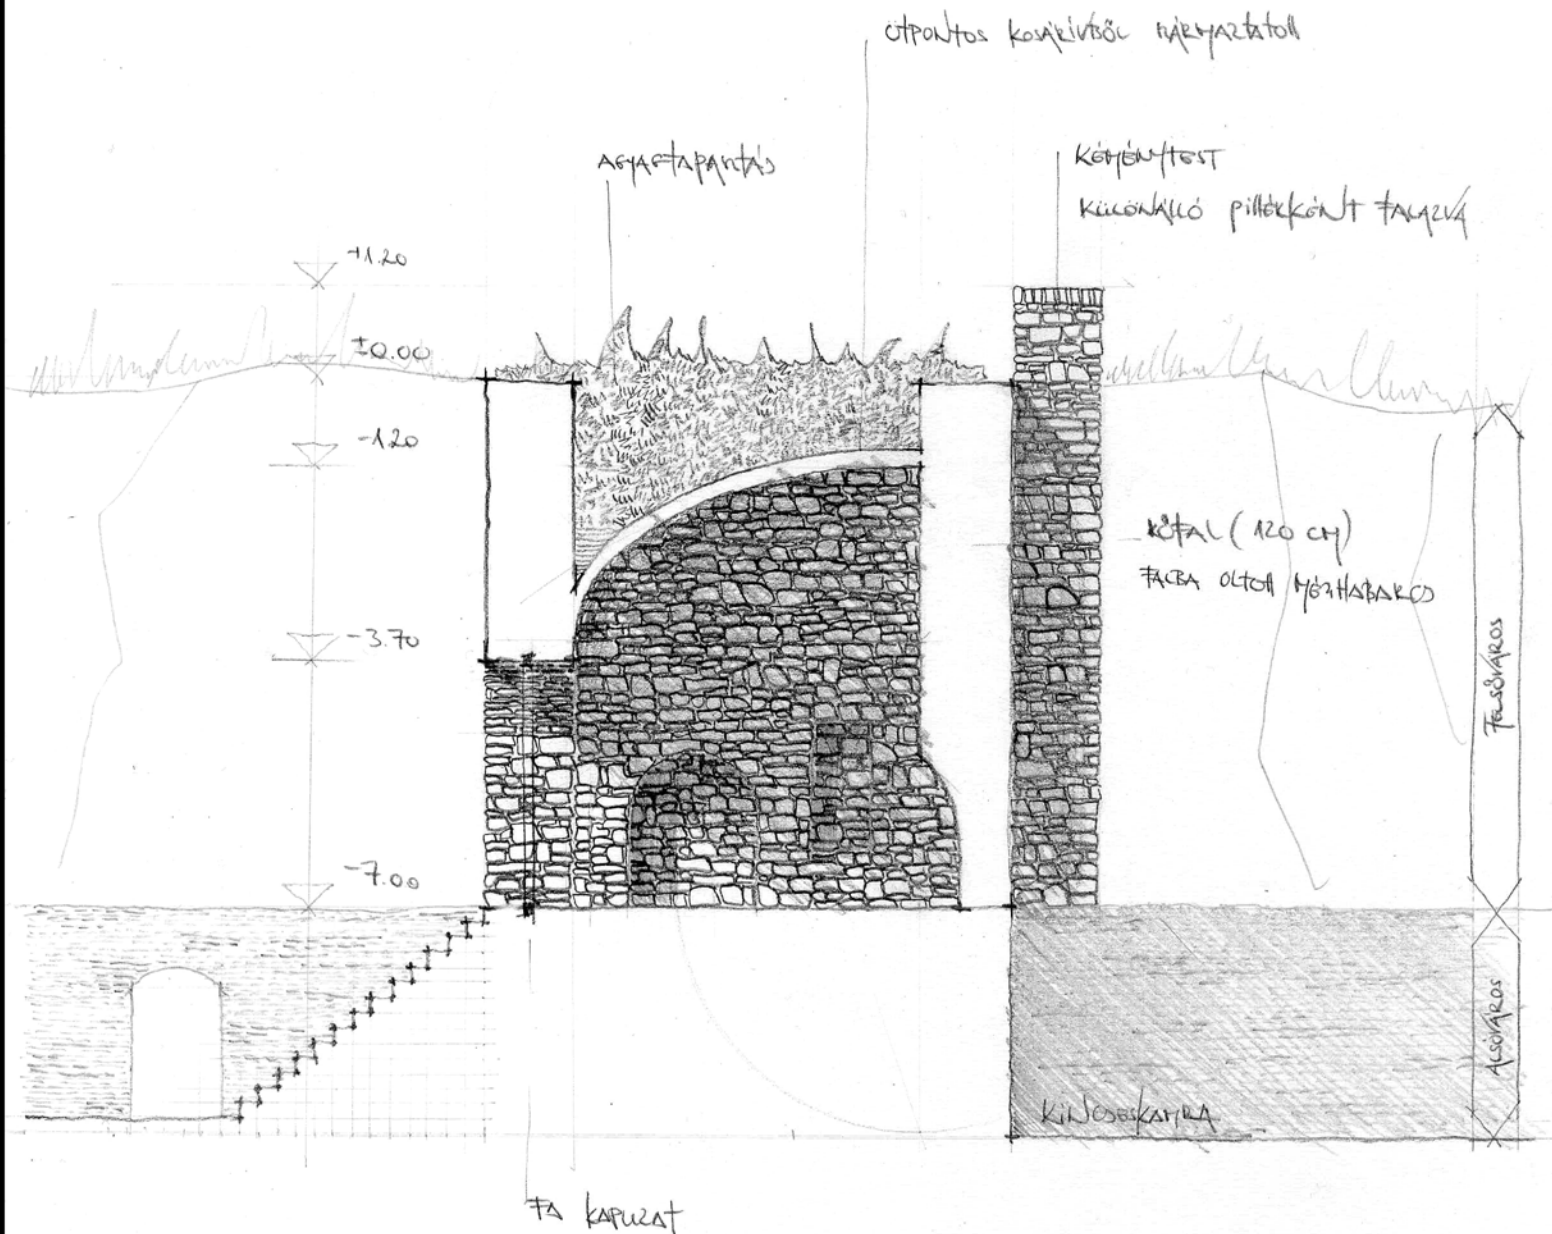 ÖTPONTOS KOSÁRÍVBŐL SZÁRMAZTATOTT
AGYAGTAPASZTÁS
KÉMÉNYTEST
KÜLÖNÁLLÓ PILLÉRKÉNT FALAZVA
+1.20
±0.00
-1.20
-3.70
-7.00
KŐFAL (120 CM)
FALBA OLTOTT MÉSZHABARCS
FELSŐVÁROS
ALSÓVÁROS
KINCSESKAMRA
FA KAPUZAT